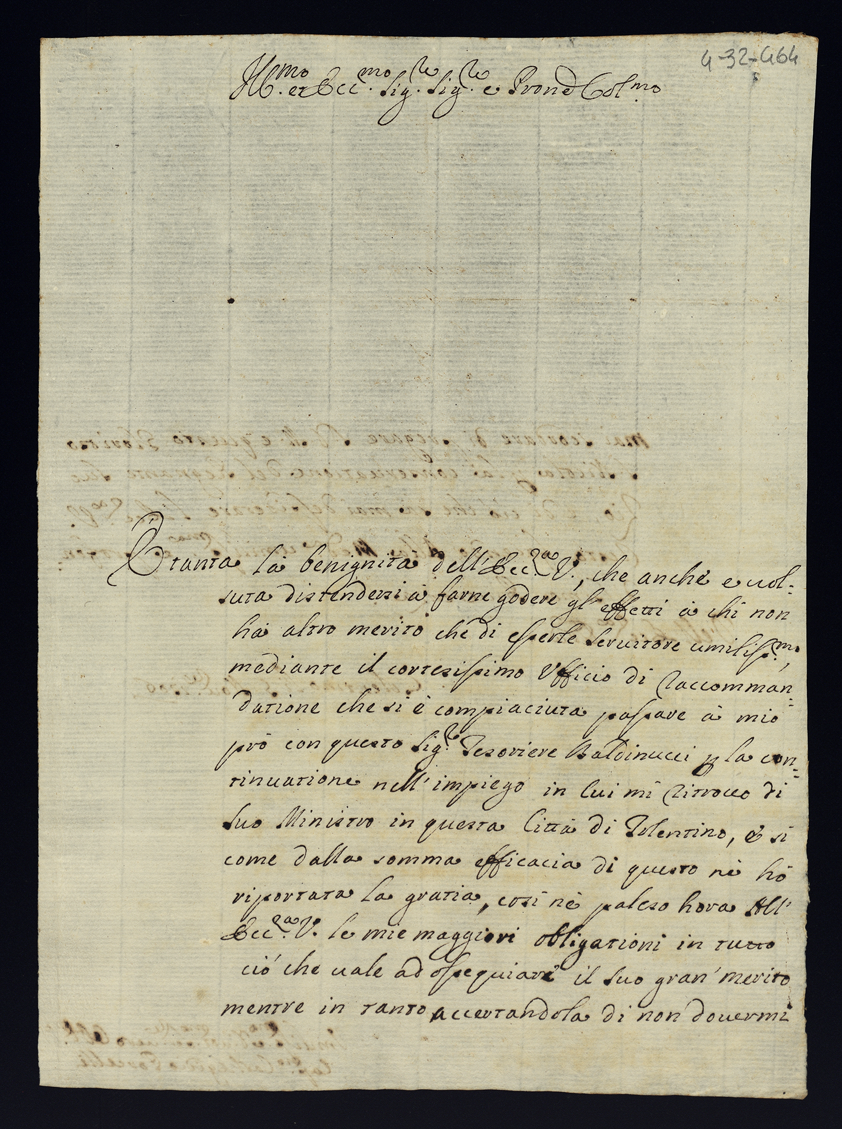 4-32-464
Ill.mo et Ecc.mo Sig.re Sig.re e Pron͠e Col.mo
È tanta la benignità dell'Ecc.za V., che anche è uol-
suta distendersi à farne godere gl'effetti à chi non
hà altro merito che di esserle seruitore umiliss.mo
mediante il cortesissimo Vfficio di raccomman-
datione che si è compiaciuta passare à mio
prò con questo Sig.re Tesoriere Baldinucci p la con-
tinuatione nell'impiego in cui mi ritrouo di
suo Ministro in questa Città di Tolentino, e si
come dalla somma efficacia di questo nè hò
riportata la gratia, così nè paleso hora All'
Ecc.za V. le mie maggiori obligationi in tutto
ciò che uale ad ossequiare il suo gran' merito
mentre in tanto accertandola di non douermi